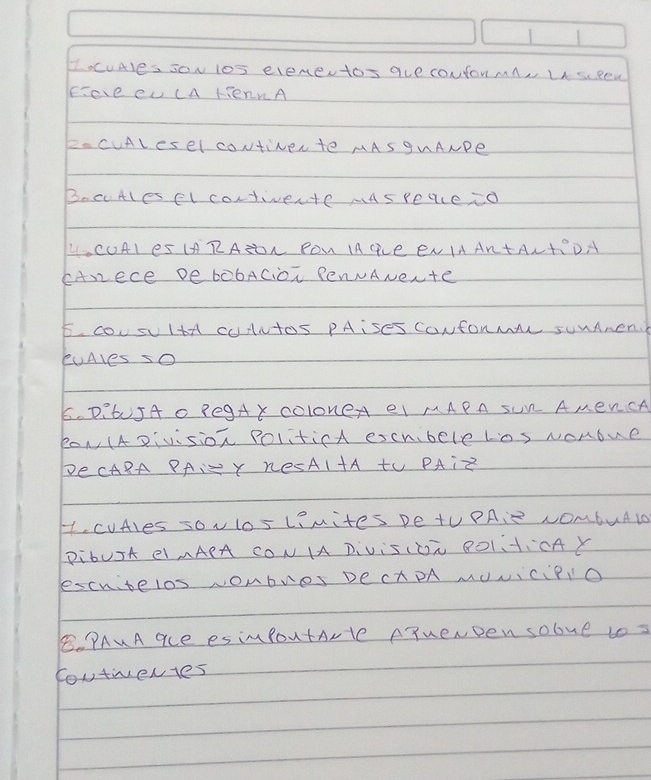 1.CUALes SON lOS elemeNtos que conformAN LA supeR
ficie eN LA tierRA
2. CUAL es el coNtiNeNte MAS gRANDe
3. CUAL es el coNtiNeNte MAS pequeño
4. CUAl es lA RAZON PoR lA que eN lA AntArtiDA
CARece De bobAcioN PeRMANeNte
5. coNsultA cuANtos PAises CoNforMAN surAmeri
cuAles so
6. DibuJA o PegA Y coloreA el MAPA sur AMericA
coN lA DivisioN PoliticA escribele los Nombre
De CADA PAiz Y resAltA tu PAiz
7. CUAles soN los limites De tu PAiz NombrAlo
DibuJA el MAPA coN lA DivisioN PoliticA Y
escribe los Nombres De cADA MuNiciPio
8. PARA que es imPortANte APreNDeN sobre los
coNtiNeNtes